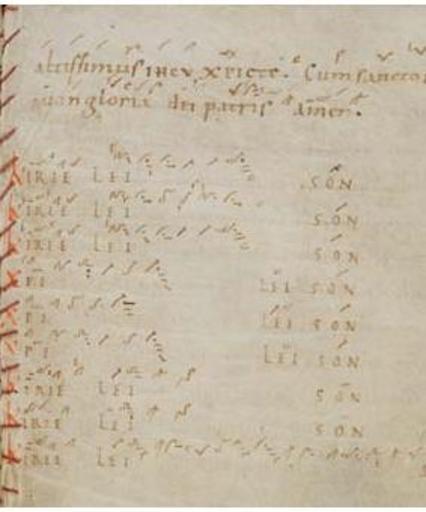 altissimus iheu xpicte. Cum sancto
in gloria dei patris amen.
KIRIE LEI SON
KIRIE LEI SON
KIRIE LEI SON
XPI LEI SON
XPI LEI SON
XPI LEI SON
KIRIE LEI SON
KIRIE LEI SON
KIRIE LEI